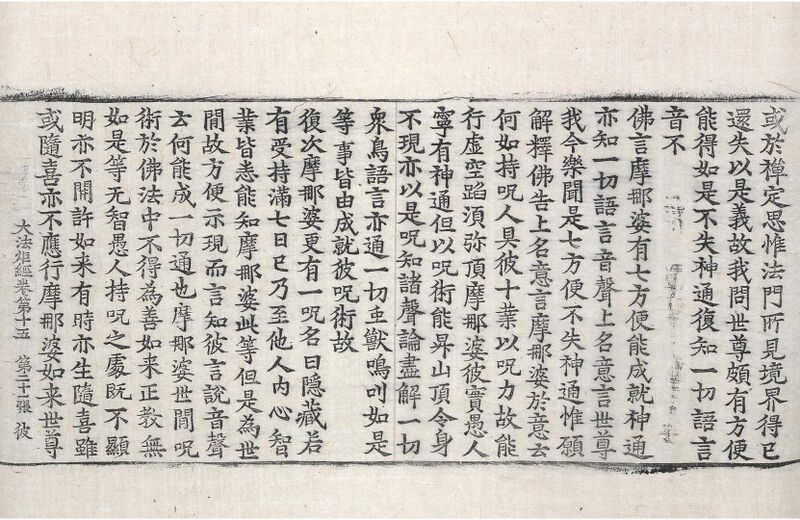 或於禪定思惟法門所見境界得已
還失以是義故我問世尊頗有方便
能得如是不失神通復知一切語言
音不
佛言摩那婆有七方便能成就神通
亦知一切語言音聲上名意言世尊
我今樂聞是七方便不失神通惟願
解釋佛告上名意言摩那婆於意去
何如持呪人具彼十業以呪力故能
行虛空蹈湏弥頂摩那婆彼實愚人
寧有神通但以呪術能昇山頂令身
不現亦以是呪知諸聲論盡解一切
衆鳥語言亦通一切玊獸鳴叫如是
等事皆由成就彼呪術故
復次摩那婆更有一呪名曰隐藏若
有受持滿七日已乃至他人内心智
業皆悉能知摩那婆此等但是為世
間故方便示現而言知彼言說音聲
去何能成一切通也摩那婆世間呪
術於佛法中不得為善如来正教無
如是等无智愚人持呪之處既不顯
明亦不開許如来有時亦生隨喜雖
或隨喜亦不應行摩那婆如来世尊
大法炬經卷第十五 第二十一張 彼